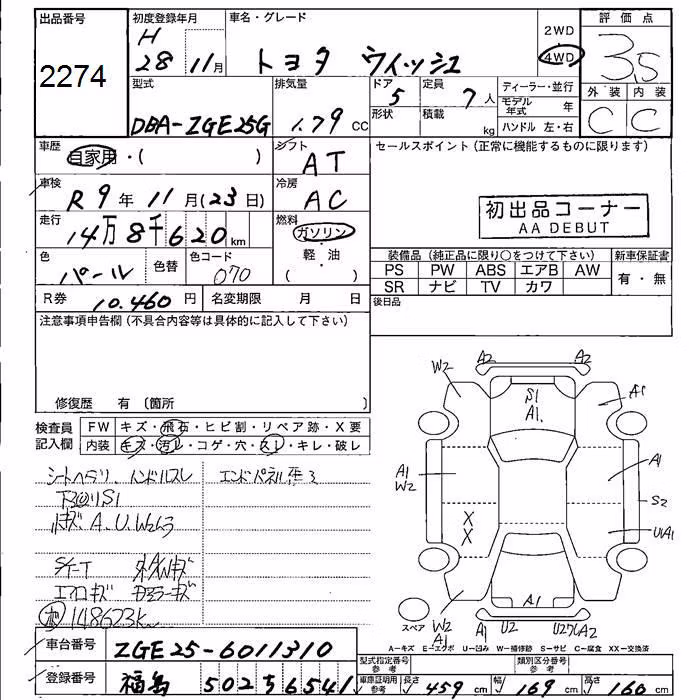 出品番号
2274
初度登録年月
H
28 11月
車名・グレード
トヨタ ウィッシュ
2WD
4WD
評価点
3.5
外装 内装
C C
型式
DBA-ZGE25G
排気量
1.79 CC
ドア
5
形状
定員
7人
積載
kg
ディーラー・並行
モデル年式 年
ハンドル 左・右
車歴
自家用・( )
シフト
AT
車検
R 9年 11月(23日)
冷房
AC
走行
14万8千620km
燃料
ガソリン
・
軽・油
( )
色
パール
色替
色コード
070
R券
10.460円
名変期限 月 日
セールスポイント(正常に機能するものに限ります)
初出品コーナー
AA DEBUT
装備品(純正品に限り○をつけて下さい)
新車保証書
PS PW ABS エアB AW
SR ナビ TV カワ
有・無
後日品
注意事項申告欄(不具合内容等は具体的に記入して下さい)
修復歴 有 (箇所
検査員記入欄
FW キズ・飛石・ヒビ割・リペア跡・X要
内装 キズ・汚レ・コゲ・穴・スレ・キレ・破レ
シートヘタリ、ハンドルスレ
エンドパネル歪3
キズ A.U.W2ムラ
エアロキズ
148623k
W2
A2
A2
A1
S1
A1
A1
W2
A1
S2
X
X
UA1
W2
A1
A1
A1
U2
A2
スペア
A-キズ E-エクボ U-凹み W-補修跡 S-サビ C-腐食 XX-交換済
車台番号
ZGE25-6011310
登録番号
福島 502 さ 6541
型式指定番号 参考
類別区分番号 参考
車庫証明用 参考
長さ 459cm
幅 169cm
高さ 160cm